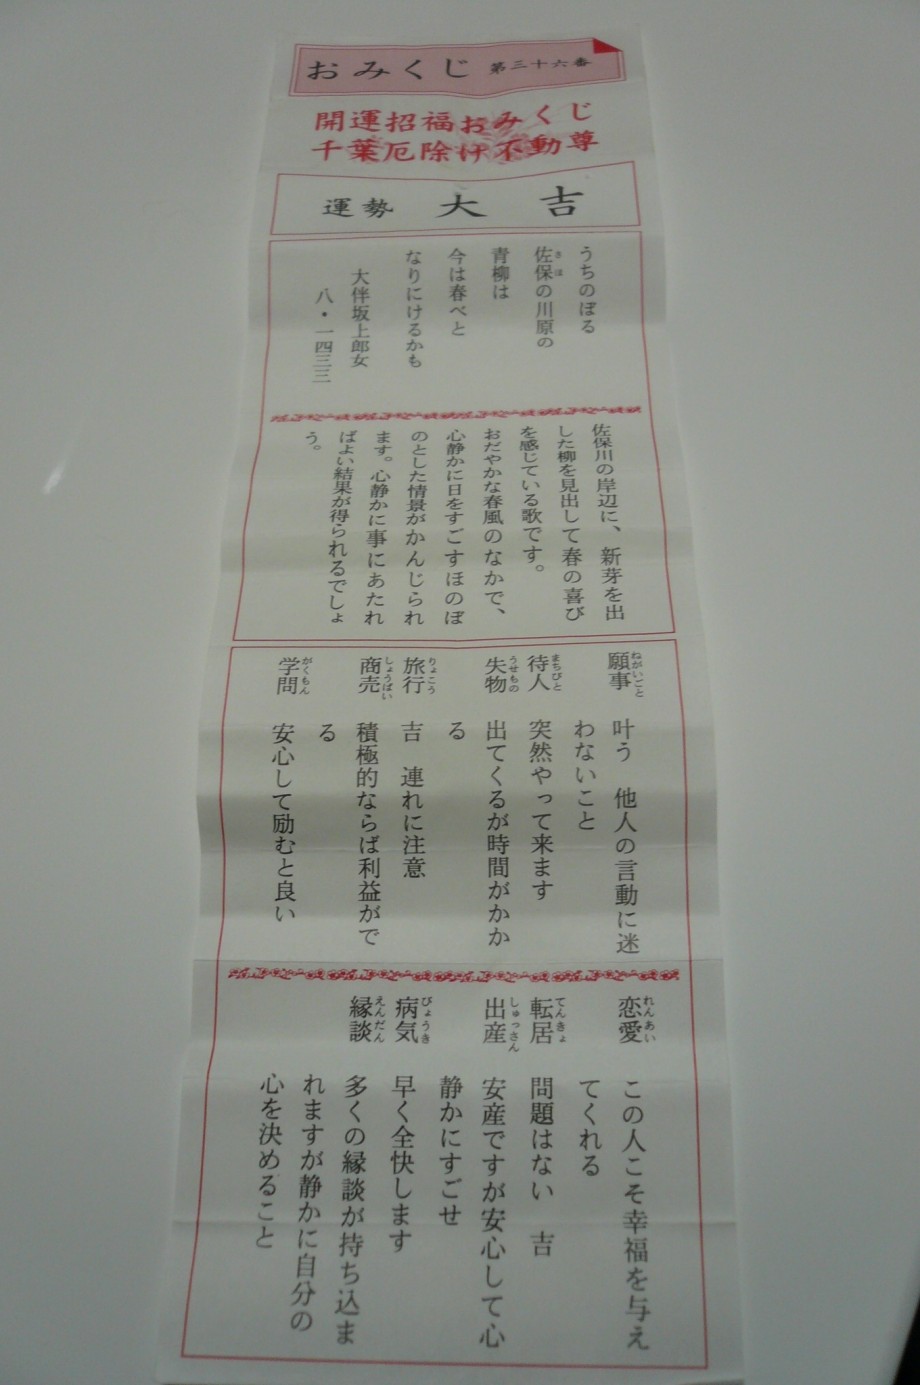 おみくじ 第三十六番
開運招福おみくじ
千葉厄除け不動尊
運勢 大吉
うちのぼる
佐保の川原の
さほ
青柳は
今は春べと
なりにけるかも
大伴坂上郎女
八・一四三三
佐保川の岸辺に、新芽を出
した柳を見出して春の喜び
を感じている歌です。
おだやかな春風のなかで、
心静かに日をすごすほのぼ
のとした情景がかんじられ
ます。心静かに事にあたれ
ばよい結果が得られるでしょ
う。
願事 ねがいごと
叶う 他人の言動に迷
わないこと
待人 まちびと
突然やって来ます
失物 うせもの
出てくるが時間がかか
る
旅行 りょこう
吉 連れに注意
商売 しょうばい
積極的ならば利益がで
る
学問 がくもん
安心して励むと良い
恋愛 れんあい
この人こそ幸福を与え
てくれる
転居 てんきょ
問題はない 吉
出産 しゅっさん
安産ですが安心して心
静かにすごせ
病気 びょうき
早く全快します
縁談 えんだん
多くの縁談が持ち込ま
れますが静かに自分の
心を決めること